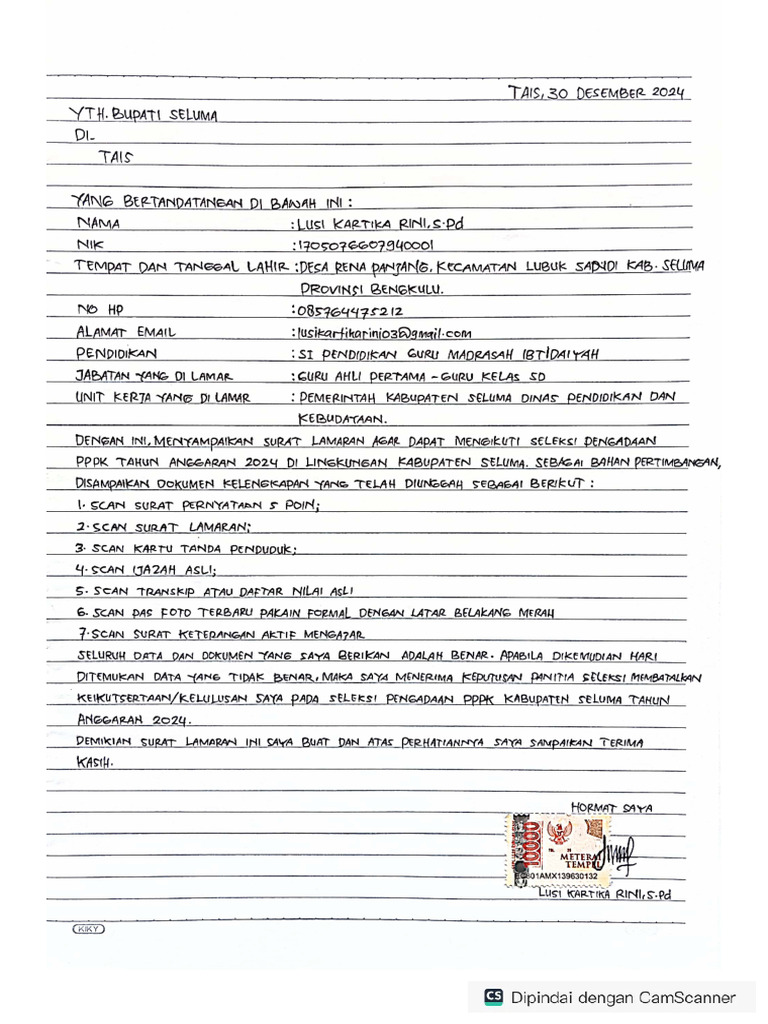 TAIS, 30 DESEMBER 2024
YTH. BUPATI SELUMA
DI-
TAIS
YANG BERTANDATANGAN DI BAWAH INI :
NAMA : LUSI KARTIKA RINI, S.Pd
NIK : 1705076607940001
TEMPAT DAN TANGGAL LAHIR : DESA RENA PANJANG. KECAMATAN LUBUK SANDI KAB. SELUMA
PROVINSI BENGKULU.
NO HP : 085764475212
ALAMAT EMAIL : lusikartikarini03@gmail.com
PENDIDIKAN : SI PENDIDIKAN GURU MADRASAH IBTIDAIYAH
JABATAN YANG DI LAMAR : GURU AHLI PERTAMA - GURU KELAS SD
UNIT KERJA YANG DI LAMAR : PEMERINTAH KABUPATEN SELUMA DINAS PENDIDIKAN DAN
KEBUDAYAAN.
DENGAN INI, MENYAMPAIKAN SURAT LAMARAN AGAR DAPAT MENGIKUTI SELEKSI PENGADAAN
PPPK TAHUN ANGGARAN 2024 DI LINGKUNGAN KABUPATEN SELUMA. SEBAGAI BAHAN PERTIMBANGAN,
DISAMPAIKAN DOKUMEN KELENGKAPAN YANG TELAH DIUNGGAH SEBAGAI BERIKUT :
1. SCAN SURAT PERNYATAAN 5 POIN;
2. SCAN SURAT LAMARAN;
3. SCAN KARTU TANDA PENDUDUK;
4. SCAN IJAZAH ASLI;
5. SCAN TRANSKIP ATAU DAFTAR NILAI ASLI
6. SCAN PAS FOTO TERBARU PAKAIN FORMAL DENGAN LATAR BELAKANG MERAH
7. SCAN SURAT KETERANGAN AKTIF MENGAJAR
SELURUH DATA DAN DOKUMEN YANG SAYA BERIKAN ADALAH BENAR. APABILA DIKEMUDIAN HARI
DITEMUKAN DATA YANG TIDAK BENAR, MAKA SAYA MENERIMA KEPUTUSAN PANITIA SELEKSI MEMBATALKAN
KEIKUTSERTAAN/KELULUSAN SAYA PADA SELEKSI PENGADAAN PPPK KABUPATEN SELUMA TAHUN
ANGGARAN 2024.
DEMIKIAN SURAT LAMARAN INI SAYA BUAT DAN ATAS PERHATIANNYA SAYA SAMPAIKAN TERIMA
KASIH.
HORMAT SAYA
10000
METERAI
TEMPEL
01AMX139630132
LUSI KARTIKA RINI, S.Pd
KIKY
CS Dipindai dengan CamScanner